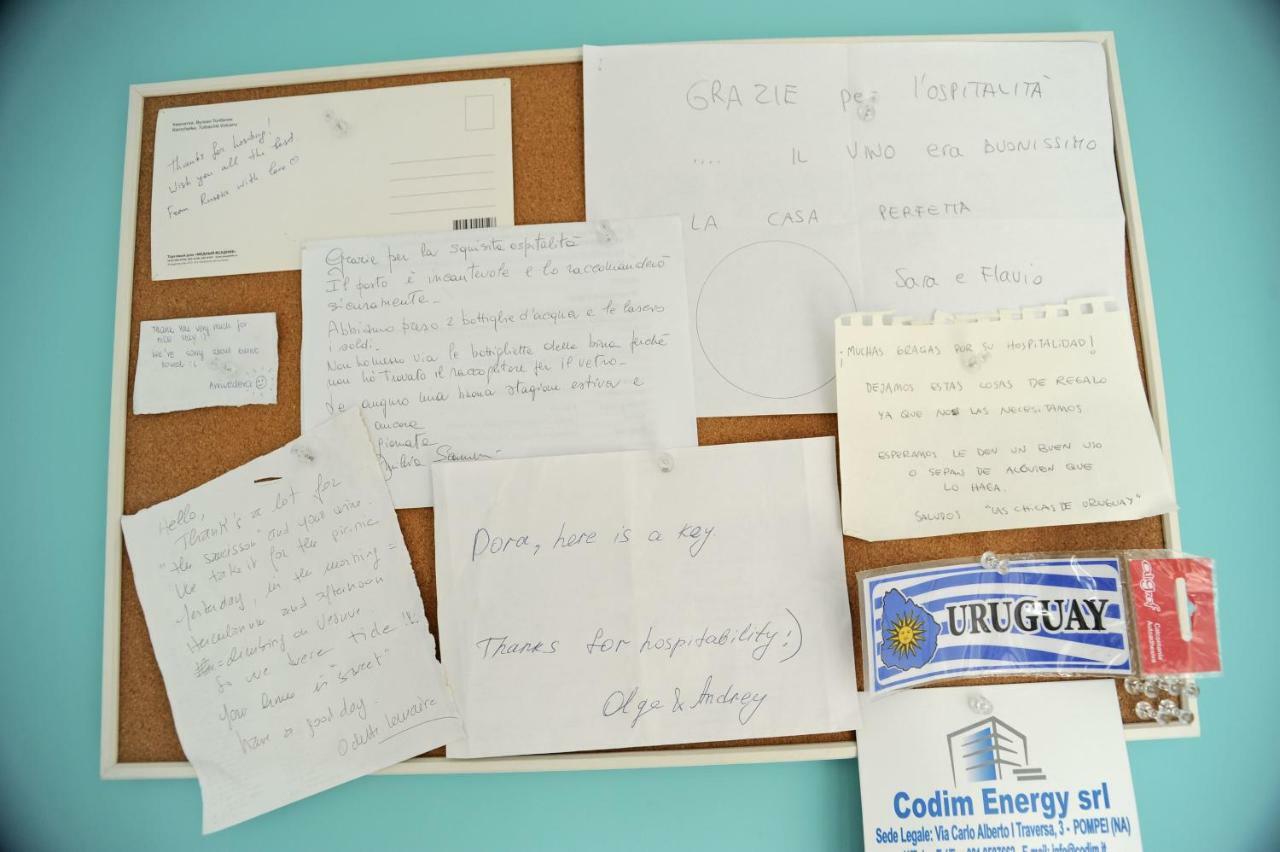 Камчатка. Вулкан Толбачик
Kamchatka. Tolbachik Volcano
Thanks for hosting!
Wish you all the best
From Russia with love
Торговый дом «МЕДНЫЙ ВСАДНИК»
GRAZIE per l'OSPITALITÀ
.... IL VINO era BUONISSIMO
LA CASA PERFETTA
Sara e Flavio
Grazie per la squisita ospitalità
Il posto è incantevole e lo raccomanderò
sicuramente.
Abbiamo preso 2 bottiglie d'acqua e le lascio
i soldi.
Non ho messo via le bottigliette della birra perché
non ho trovato il raccoglitore per il vetro.
Le auguro una buona stagione estiva e
ancora
Thank you very much for
nice stay!!
We're sorry about
¡MUCHAS GRACIAS POR SU HOSPITALIDAD!
DEJAMOS ESTAS COSAS DE REGALO
YA QUE NO LAS NECESITAMOS
ESPERAMOS LE DEN UN BUEN USO
O SEPAN DE ALGUIEN QUE
LO HAGA.
SALUDOS "LAS CHICAS DE URUGUAY"
Hello,
Thank's a lot for
"the saucisson" and your wine.
We take it for the picinic
yesterday, in the morning =
Herculanum and afternoon
= climbing on Vesuve.
So we were tide !!
your house is "sweet"
have a good day.
Odette
Dora, here is a key.
Thanks for hospitability:)
Olga & Andrey
URUGUAY
Calcomanía
Autoadhesiva
Codim Energy srl
Sede Legale: Via Carlo Alberto I Traversa, 3 - POMPEI (NA)
E-mail: info@codim.it